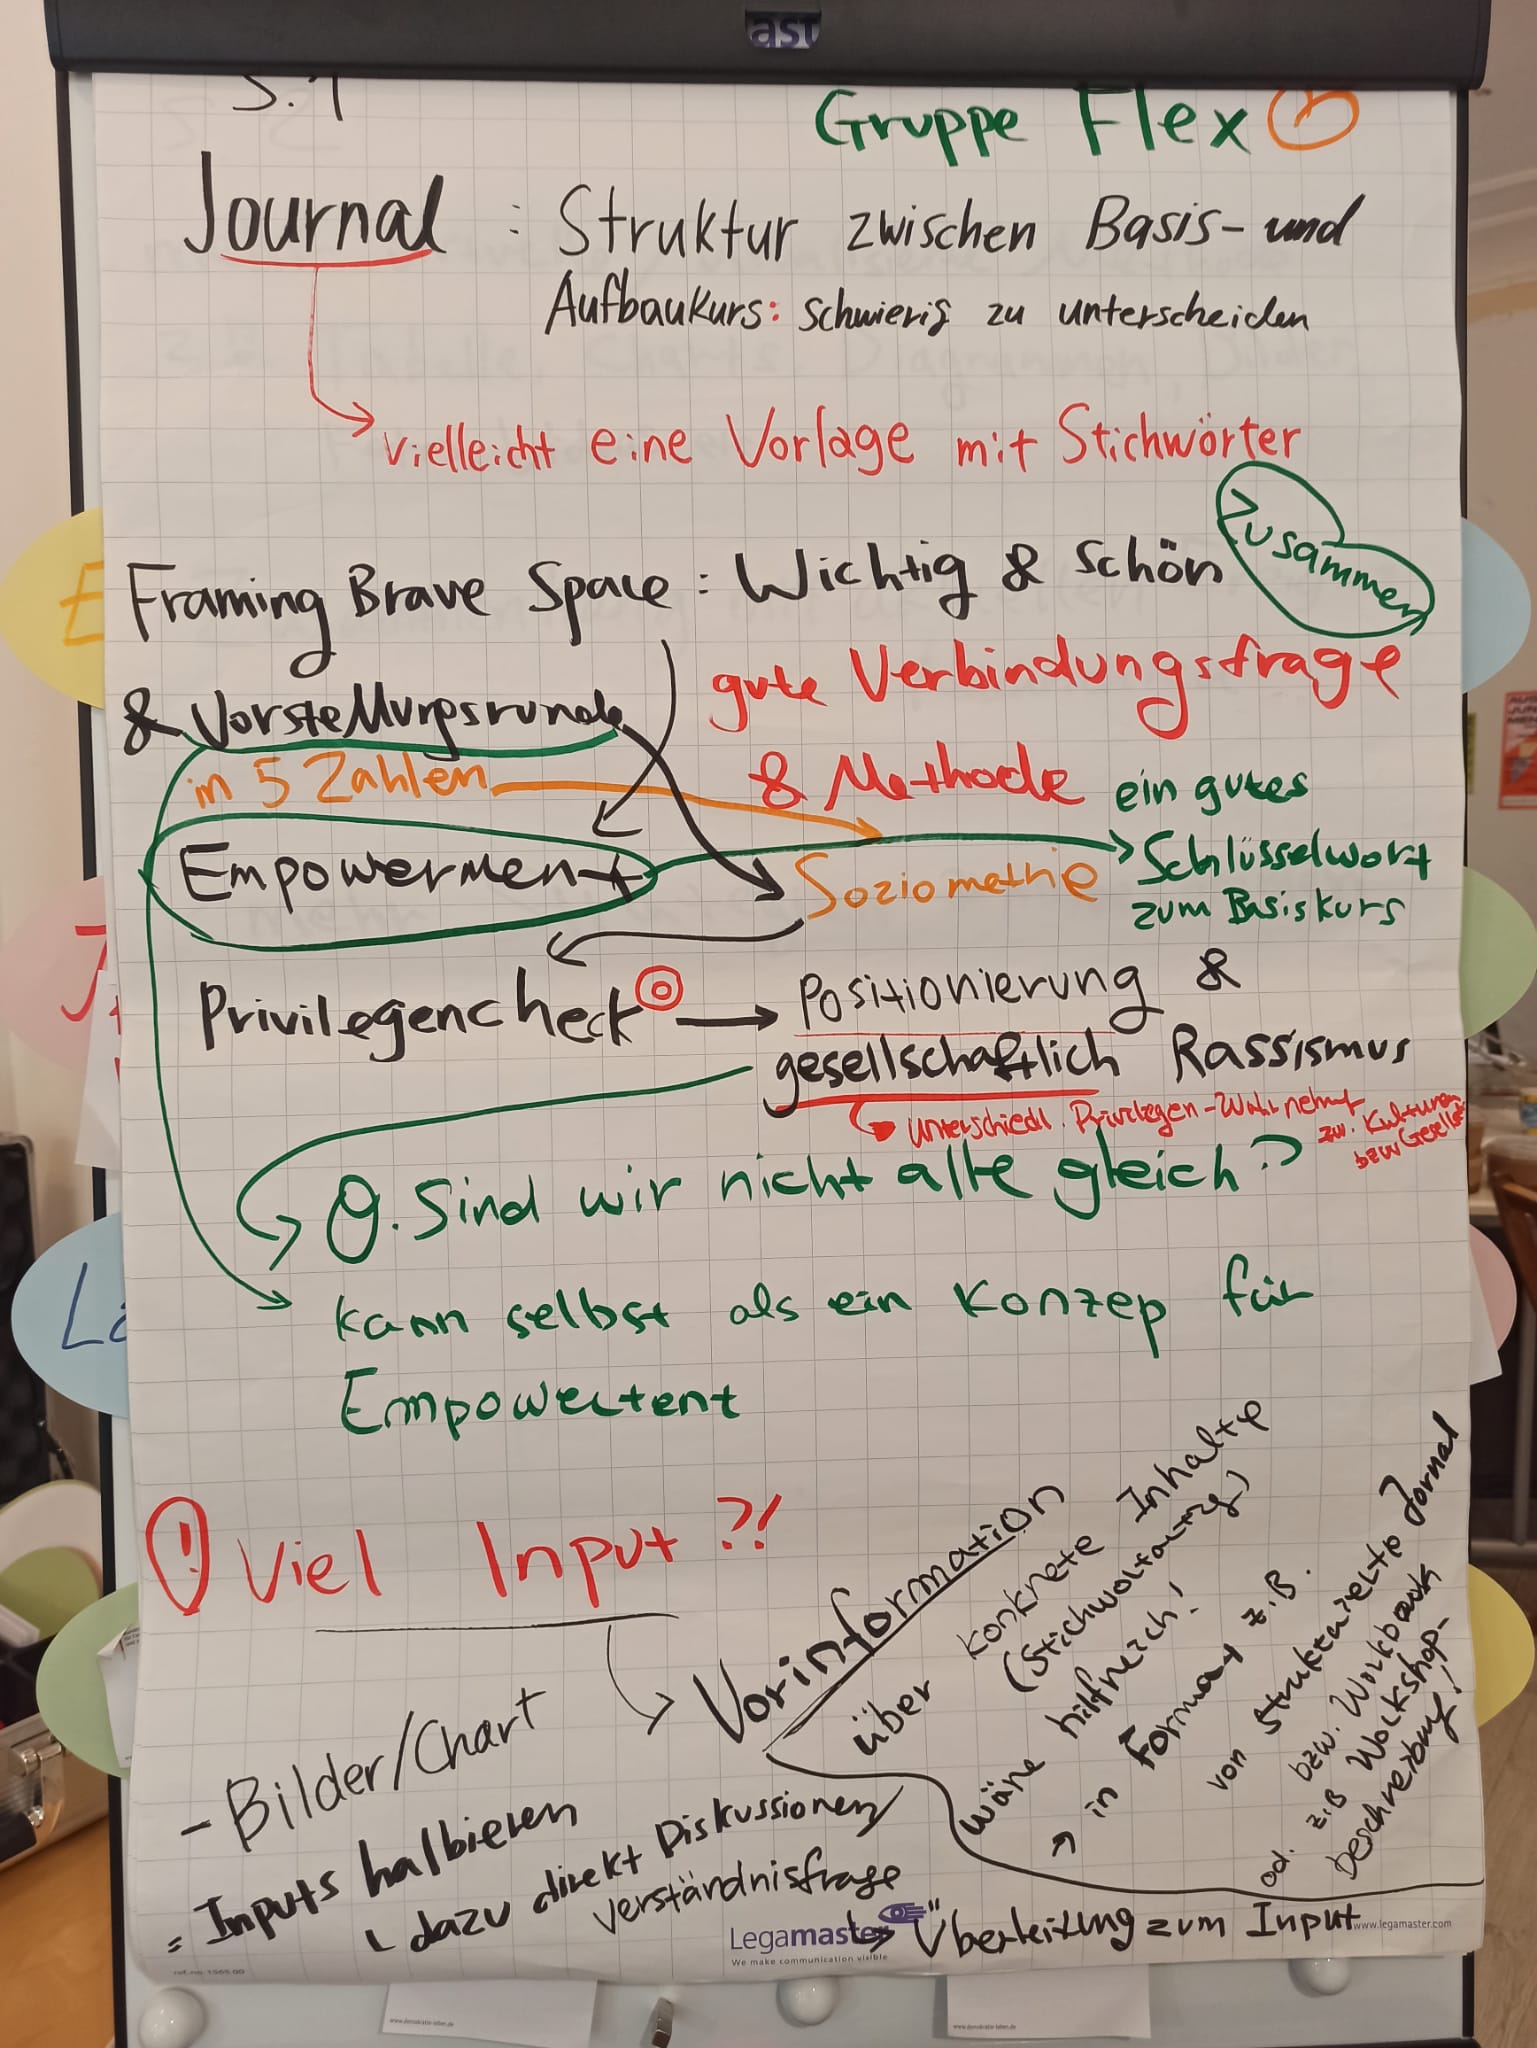 ast
S. 1
Gruppe Flex
Journal : Struktur zwischen Basis- und
Aufbaukurs: schwierig zu unterscheiden
vielleicht eine Vorlage mit Stichwörter
Framing Brave Space : Wichtig & schön
Zusammen
& Vorstellungsrunde
gute Verbindungsfrage
& Methode
in 5 Zahlen
ein gutes
Schlüsselwort
zum Basiskurs
Empowerment
Soziomethie
Privilegencheck → Positionierung &
gesellschaftlich Rassismus
Unterschiedl. Privilegen-Wahrnehmg
zw. Kulturen
bzw Gesells
Q. Sind wir nicht alle gleich?
kann selbst als ein Konzep für
Empowertent
! Viel Input ?!
Vorinformation
über konkrete Inhalte
(Stichwortartig)
wäre hilfreich!
→ in Format z.B.
von strukturierte Jornal
bzw. Workbook
od. z.B Workshop-
beschreibung!
- Bilder/Chart
= Inputs halbieren
dazu direkt Diskussionen/
verständnisfrage
↳ Überleitung zum Input
Legamaster
We make communication visible
www.legamaster.com
www.demokratie-leben.de
www.demokratie-leben.de